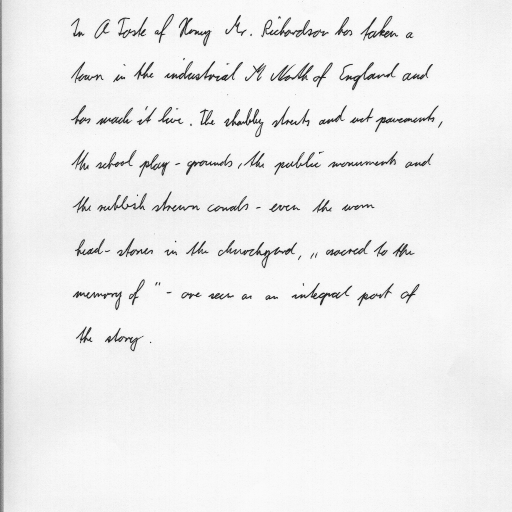 In A Taste of Honey Mr. Richardson has taken a
town in the industrial North of England and
has made it live. The shabby streets and wet pavements,
the school play-grounds, the public monuments and
the rubbish strewn canals - even the worn
head-stones in the churchyard, „ sacred to the
memory of " - are seen as an integral part of
the story.